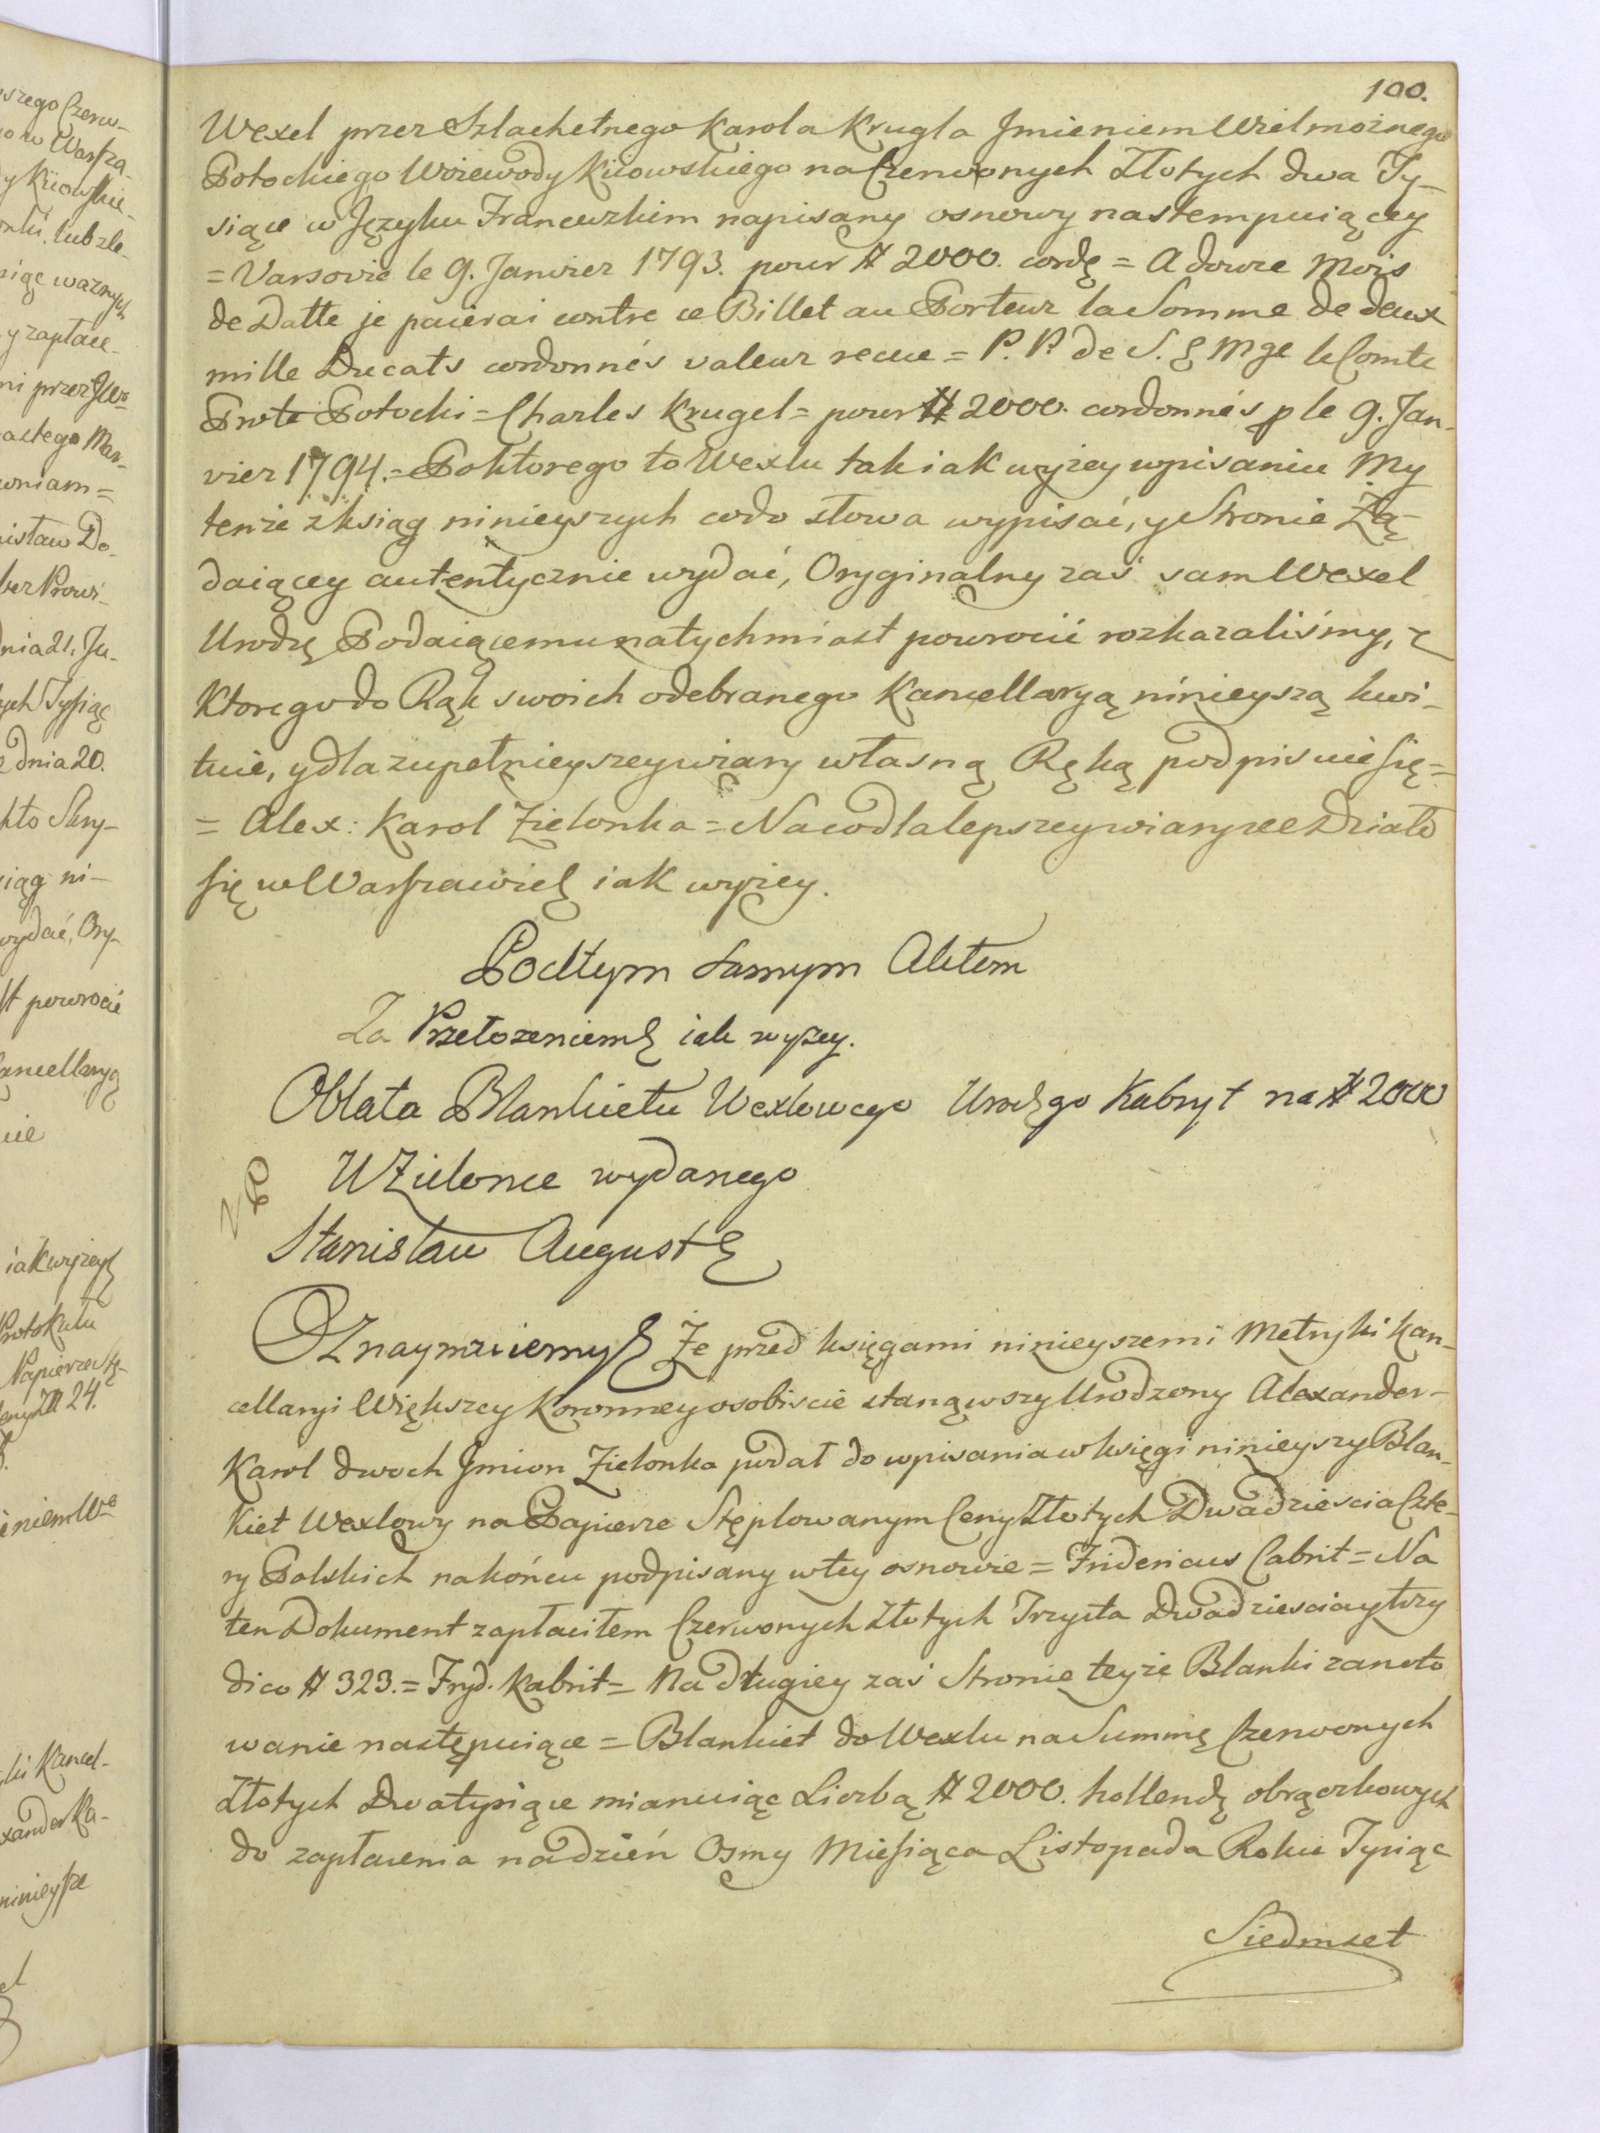 100.
Wexel przez Szlachetnego Karola Krugla Jmieniem Wielmożnego
Potockiego Wojewody Kiiowskiego na Czerwonych Złotych dwa Ty-
siące w Języku Francuzkim napisany osnowy nastempuiącey
= Varsovie le 9. Janvier 1793. pour # 2000. cordę = A douze Mois
de Datte je paierai contre ce Billet au Porteur la Somme de deux
mille Ducats cordonnés valeur recue = P. P. de S. E Mge le Comte
Prote Potocki = Charles Krugel = pour # 2000. cordonnés p le 9. Jan-
vier 1794. = Po ktorego to Wexlu tak iak wyżey wpisaniu My
tenże z ksiąg ninieyszych co do słowa wypisać, y Stronie Żą-
daiącey autentycznie wydać, Oryginalny zaś sam Wexel
Urodzę Podaiącemu natychmiast powrocić rozkazaliśmy, z
Ktorego do Rąk swoich odebranego Kancellaryą ninieyszą kwi-
tuie, y dla zupełnieyszey wiary własną Ręką podpisuie się =
= Alex: Karol Zielonka = Na co dla lepszey wiary ee Działo
się w Warszawie iak wyżey.
Pod tym samym Aktem
Za Przełożeniem iak wyżey.
Oblata Blankietu Wexlowego Urodzgo Kabryt na # 2000
U Zielonce wydanego
Stanisław August
Oznaymuiemy Że przed księgami ninieyszemi Metryki Kan-
cellaryi Większey Koronney osobiscie stanąwszy Urodzony Alexander-
Karol dwoch Jmion Zielonka podał do wpisania w księgi ninieyszy Blan-
kiet Wexlowy na Papierze Stęplowanym Ceny Złotych Dwadziescia Czte-
ry Polskich na końcu podpisany w tey osnowie = Fridericus Cabrit = Na
ten Dokument zapłaciłem Czerwonych Złotych Trzysta Dwadziescia y trzy
dico # 323. = Fryd. Kabrit = Na drugiey zaś Stronie teyże Blanki zanoto
wanie następuiące = Blankiet do Wexlu na Summę Czerwonych
Złotych Dwa tysiące mianuiąc Liczbą # 2000. hollendę obrączkowych
do zapłacenia na dzień Osmy Miesiąca Listopada Roku Tysiąc
Siedmset